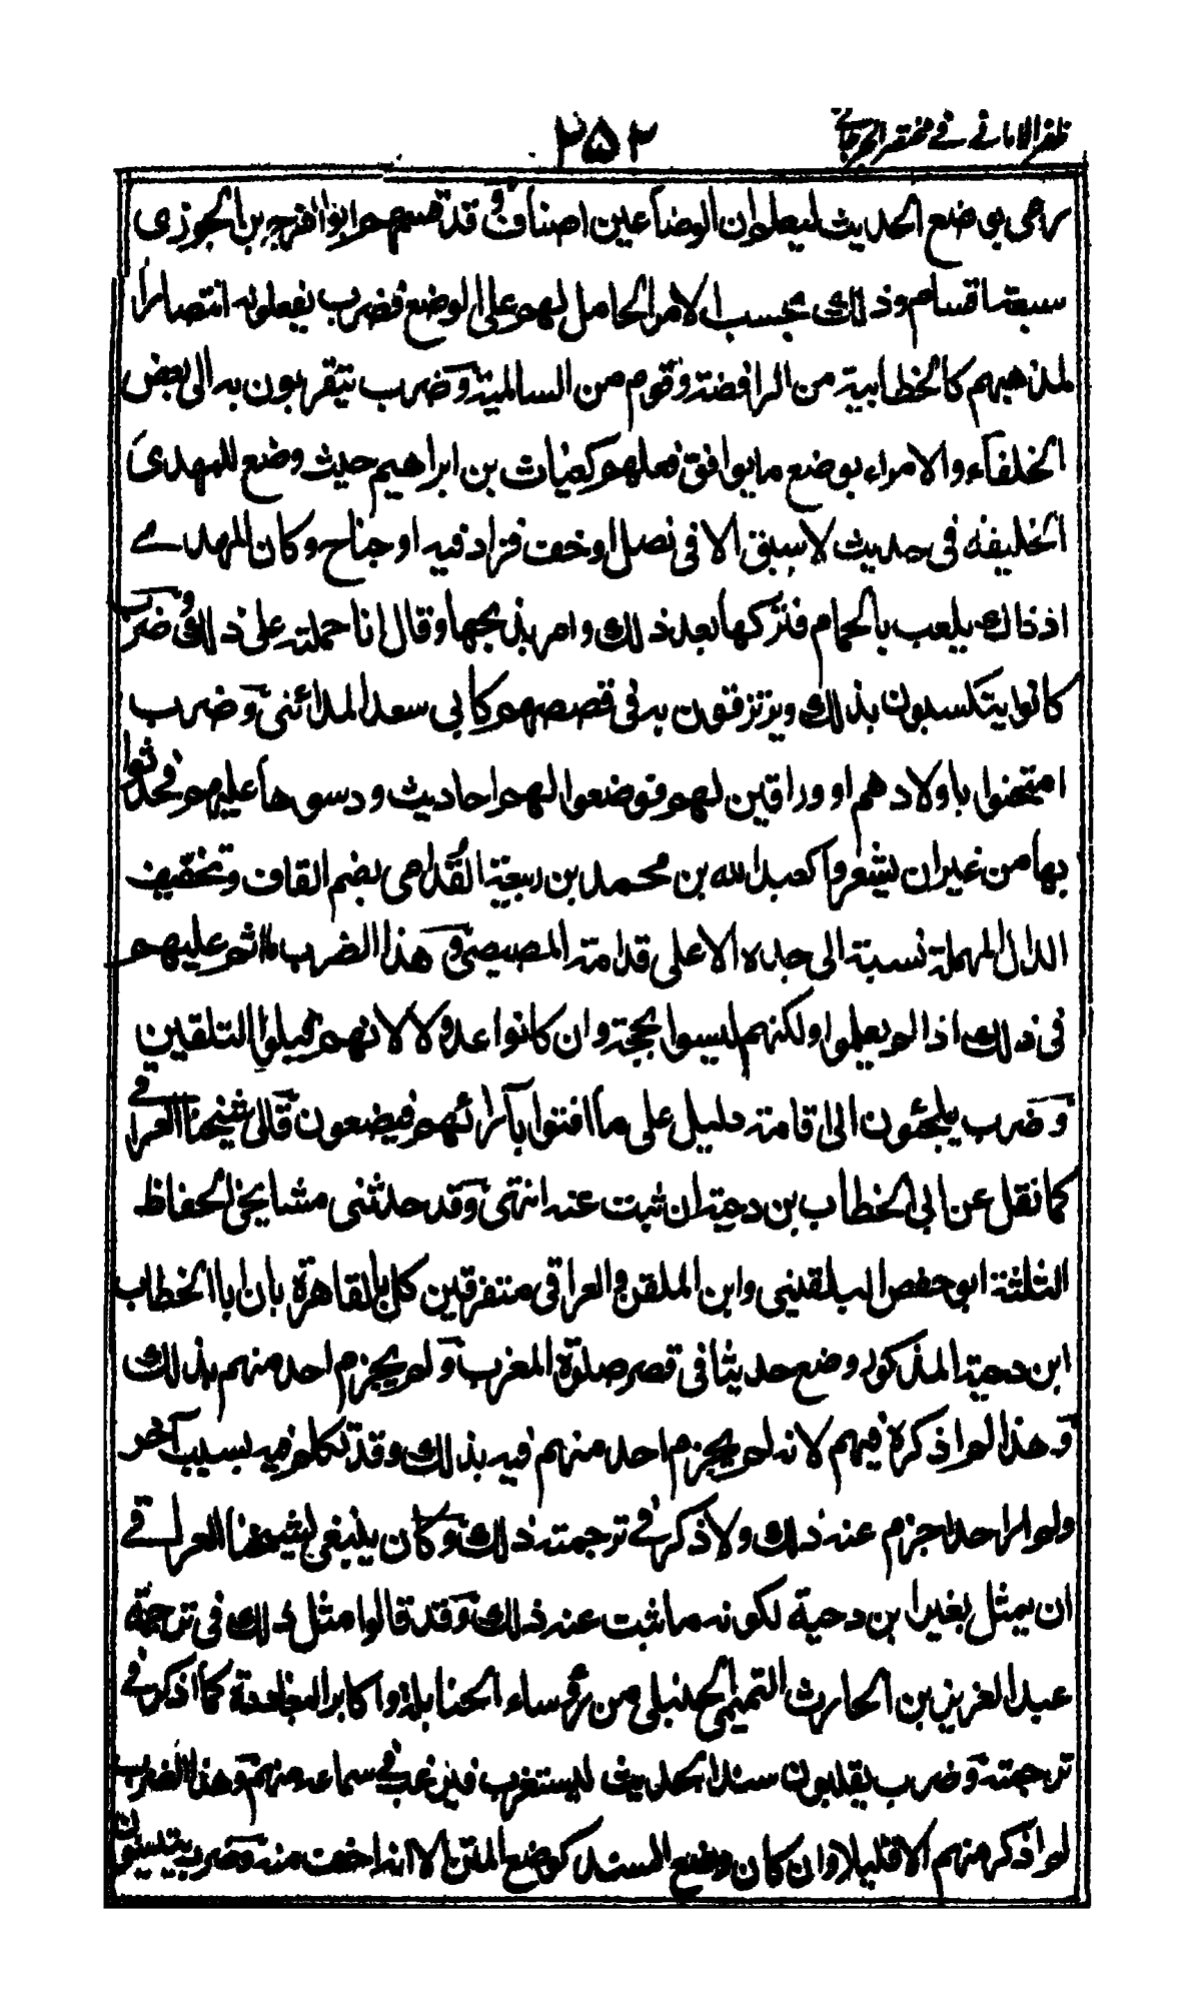 ظفر الامانی فی مختصر الجرجانی
۲۵۲
رمی بوضع الحدیث لیعلم ان الوضاعین اصناف وقد قسمهم ابو الفرج بن الجوزی
سبعة اقسام وذلك بحسب الامر الحامل لهم علی الوضع فضرب یفعلونه انتصارا
لمذهبهم كالخطابیة من الرافضة وقوم من السالمیة وضرب یتقربون به الی بعض
الخلفاء والامراء بوضع ما یوافق فعلهم كغیاث بن ابراهیم حیث وضع للمهدی
الخلیفة فی حدیث لا سبق الا فی نصل او خف فزاد فیه او جناح وكان المهدی
اذ ذاك یلعب بالحمام فتركها بعد ذلك وامر بذبحها وقال انا حملته علی ذلك وضرب
كانوا یتكسبون بذلك ویرتزقون به فی قصصهم كابی سعد المدائنی وضرب
امتحنوا باولادهم او وراقین لهم فوضعوا لهم احادیث ودسوها علیهم فحدثوا
بها من غیر ان یشعروا كعبد الله بن محمد بن ربیعة القُدامی بضم القاف وتخفیف
الدال المهملة نسبة الی جده الاعلی قدامة المصیصی وهذا الضرب لا اثم علیهم
فی ذلك اذا لم یعلموا ولكنهم لیسوا بحجة وان كانوا عدولا لانهم قبلوا التلقین
وضرب یلجئون الی اقامة دلیل علی ما افتوا بآرائهم فیضعون قال شیخنا العراقی
كما نقل عن ابی الخطاب بن دحیة ان ثبت عنه انتهی وقد حدثنی مشایخی الحفاظ
الثلثة ابو حفص البلقینی وابن الملقن والعراقی متفرقین كل بالقاهرة بان ابا الخطاب
ابن دحیة المذكور وضع حدیثا فی قصر صلوة المغرب ولم یجزم احد منهم بذلك
وهذا لم اذكره فیهم لانه لم یجزم احد منهم فیه بذلك وقد تكلم فیه بسبب آخر
ولم ار احدا جزم عنه ذلك ولا ذكر فی ترجمته ذلك وكان ینبغی لشیخنا العراقی
ان یمثل بغیر ابن دحیة لكونه ما ثبت عنه ذلك وقد قالوا مثل ذلك فی ترجمة
عبد العزیز بن الحارث التمیمی الحنبلی من رؤساء الحنابلة واكابر البغاددة كما اذكر فی
ترجمته وضرب یقلبون سند الحدیث لیستغرب فیرغب فی سماعه منهم وهذا الضرب
لم اذكر منهم الا قلیلا وان كان وضع السند كوضع المتن الا انه اخف منه وضرب یتدینون